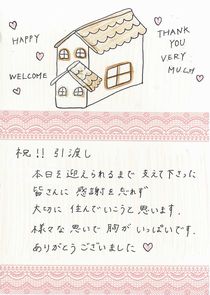 HAPPY
WELCOME
THANK
YOU
VERY
MUCH
祝!! 引渡し
本日を迎えられるまで 支えて下さった
皆さんに 感謝を忘れず
大切に 住んでいこうと思います.
様々な 思いで 胸が いっぱいです.
ありがとうございました ♡